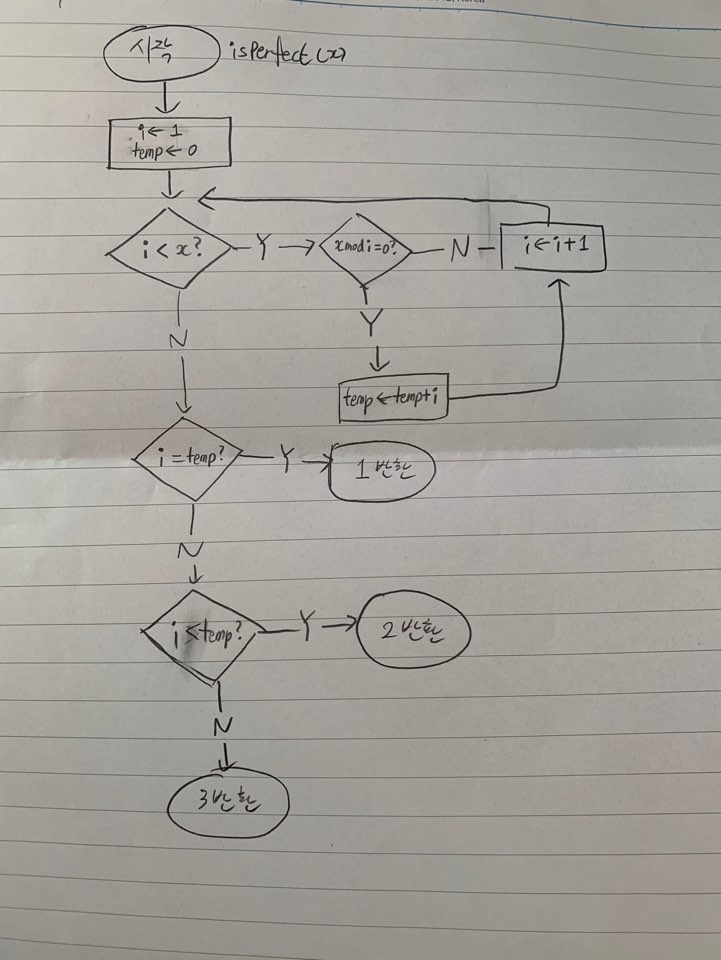 시작 isPerfect(x)
i ← 1
temp ← 0
i < x? Y x mod i = 0? N i ← i + 1
N Y
temp ← temp + i
i = temp? Y 1 반환
N
i ≤ temp? Y 2 반환
N
3 반환